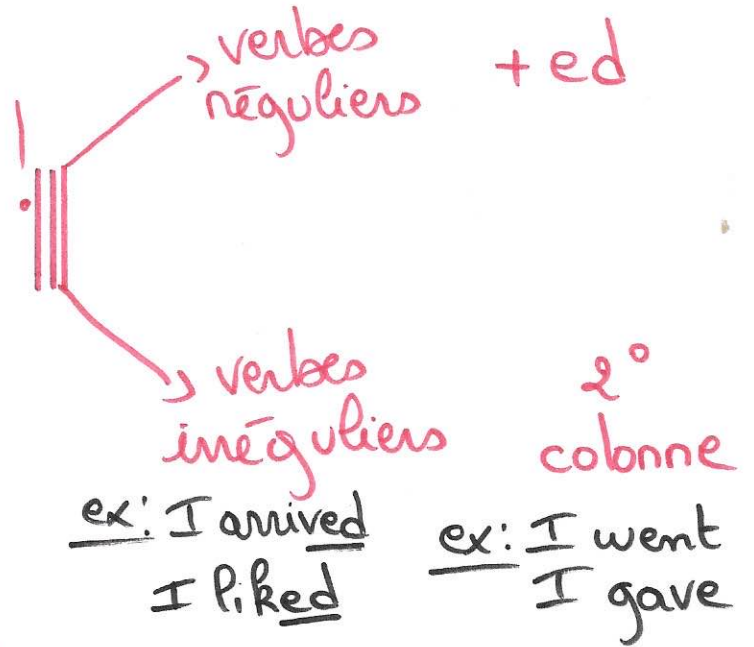 !
verbes
réguliers
+ ed
verbes
irréguliers
2°
colonne
ex: I arrived
I liked
ex: I went
I gave